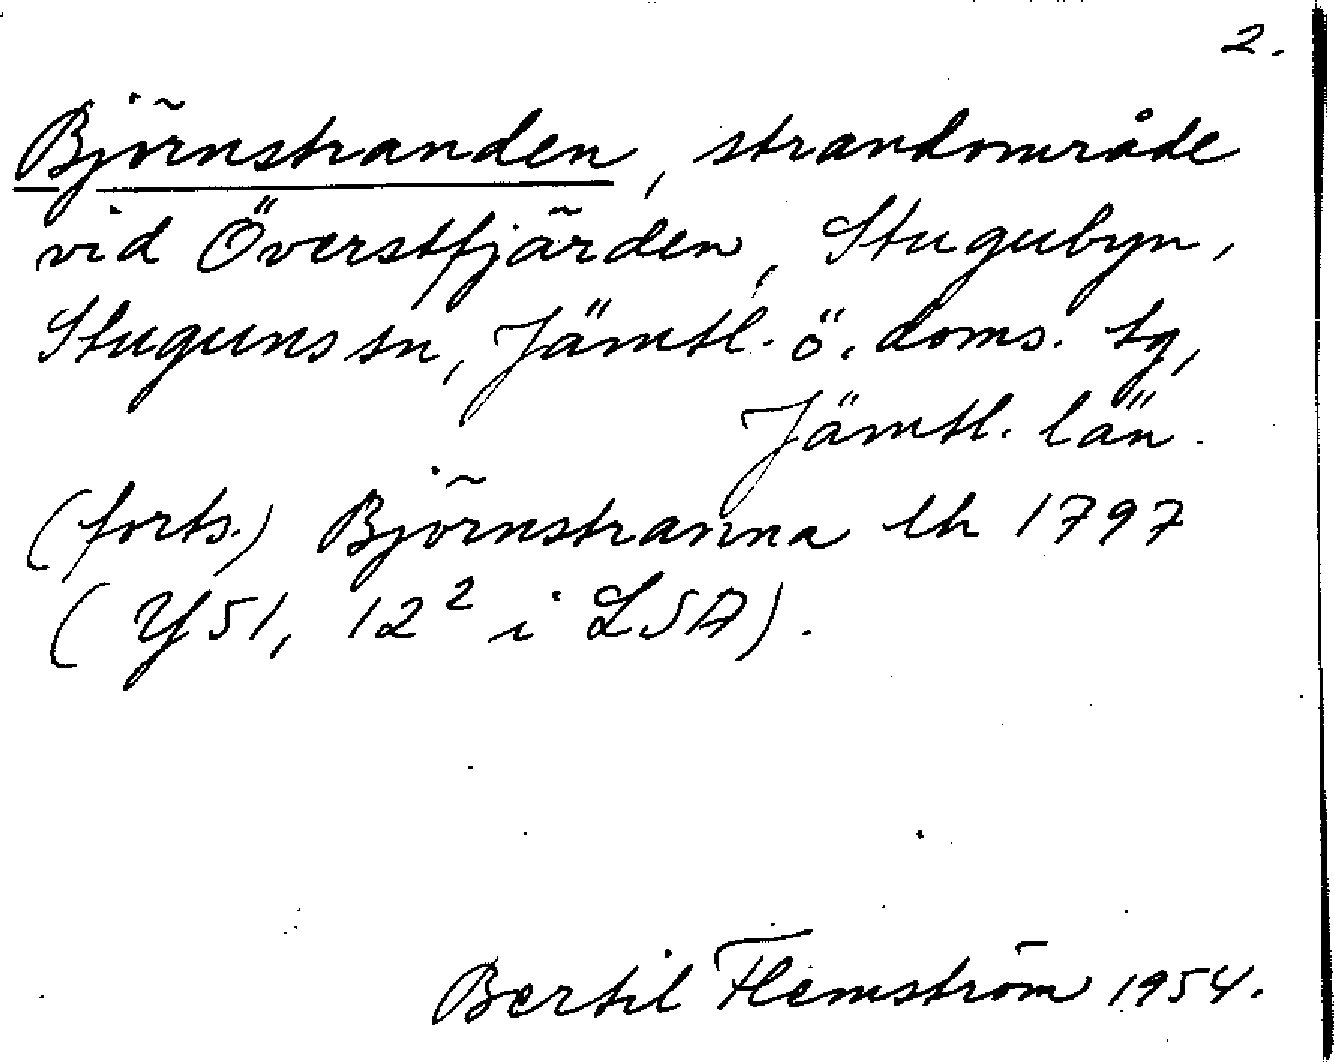 2.
Björnstranden, strandområde
vid Överstfjärden, Stugubyn,
Stuguns sn, Jämtl. ö. doms. tg,
Jämtl. län.
(forts.) Björnstranna lh 1797
(Y51, 12² i LSA).
Bertil Flemström 1954.